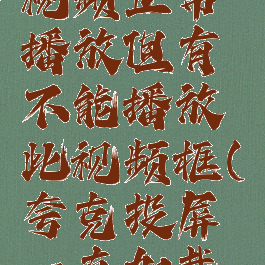 视频正常
播放但有
不能播放
此视频框(
夸克投屏